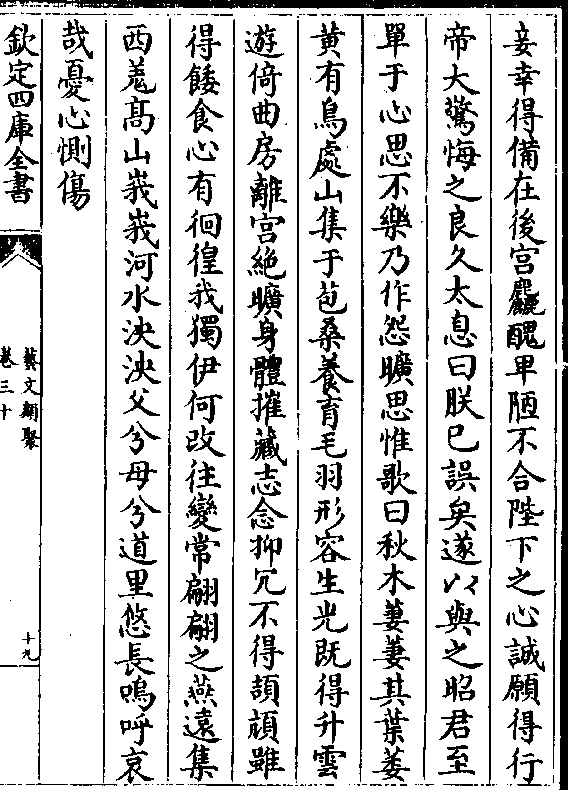 妾幸得備在後宮麤醜卑陋不合陛下之心誠願得行
帝大驚悔之良久太息曰朕已誤矣遂以與之昭君至
單于心思不樂乃作怨曠思惟歌曰秋木萋萋其葉萎
黄有鳥處山集于苞桑養育毛羽形容生光既得升雲
遊倚曲房離宮絶曠身體摧藏志念抑冗不得頡頏雖
得餧食心有徊徨我獨伊何改往變常翩翩之燕遠集
西羗高山峩峩河水泱泱父兮母兮道里悠長嗚呼哀
哉憂心惻傷
欽定四庫全書
藝文類聚
卷三十
十九